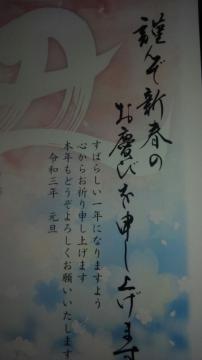 謹んで新春の
お慶びを申し上げます
すばらしい一年になりますよう
心からお祈り申し上げます
本年もどうぞよろしくお願いいたします
令和三年　元旦